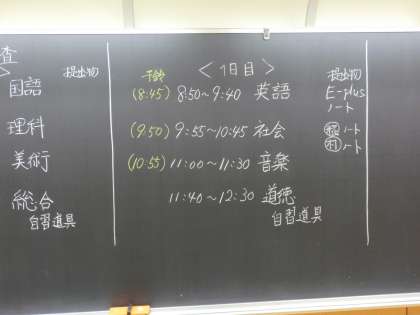 査
>
提出物
国語
理科
美術
総合
自習道具
予鈴
<1日目>
(8:45) 8:50~9:40 英語
(9:50) 9:55~10:45 社会
(10:55) 11:00~11:30 音楽
11:40~12:30 道徳
自習道具
提出物
E-plus
ノート
ノート
ノート